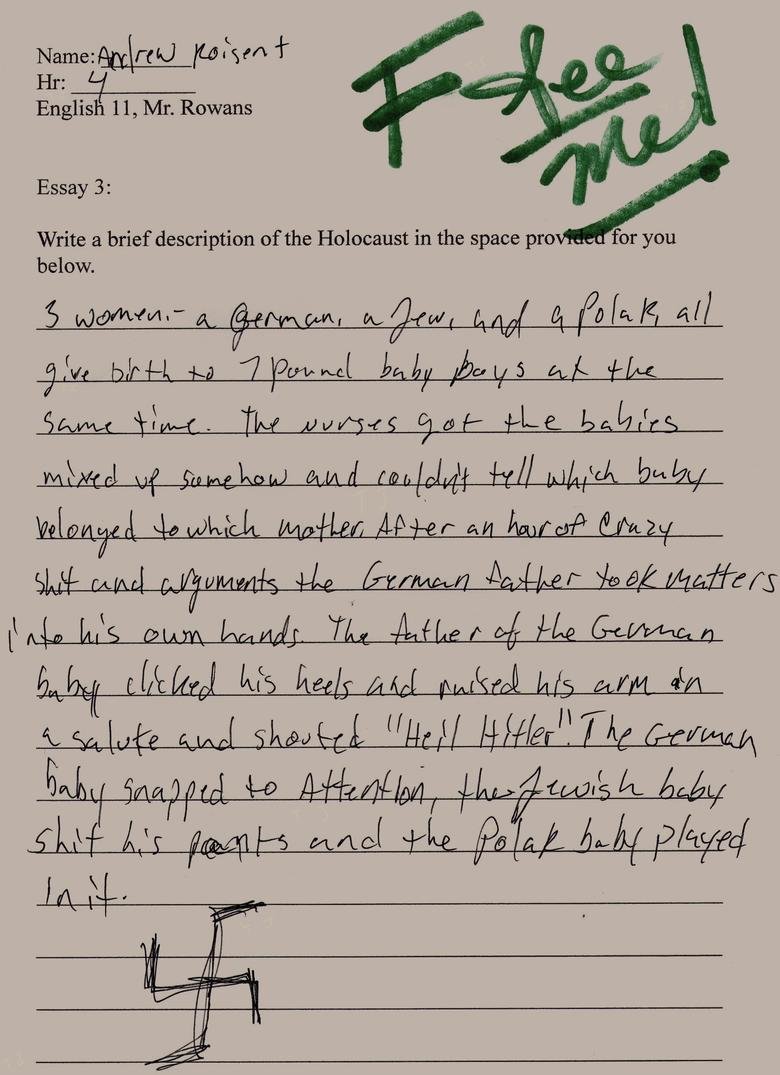 Name: Andrew Roisent
Hr: 4
English 11, Mr. Rowans
F - See
Me!
Essay 3:
Write a brief description of the Holocaust in the space provided for you
below.
3 women - a German, a Jew, and a Polak, all
give birth to 7 pound baby boys at the
same time. The nurses got the babies
mixed up somehow and couldn't tell which baby
belonged to which mother. After an hour of crazy
shit and arguments the German father took matters
into his own hands. The father of the German
baby clicked his heels and raised his arm in
a salute and shouted "Heil Hitler". The German
baby snapped to Attention, the Jewish baby
shit his pants and the Polak baby played
in it.